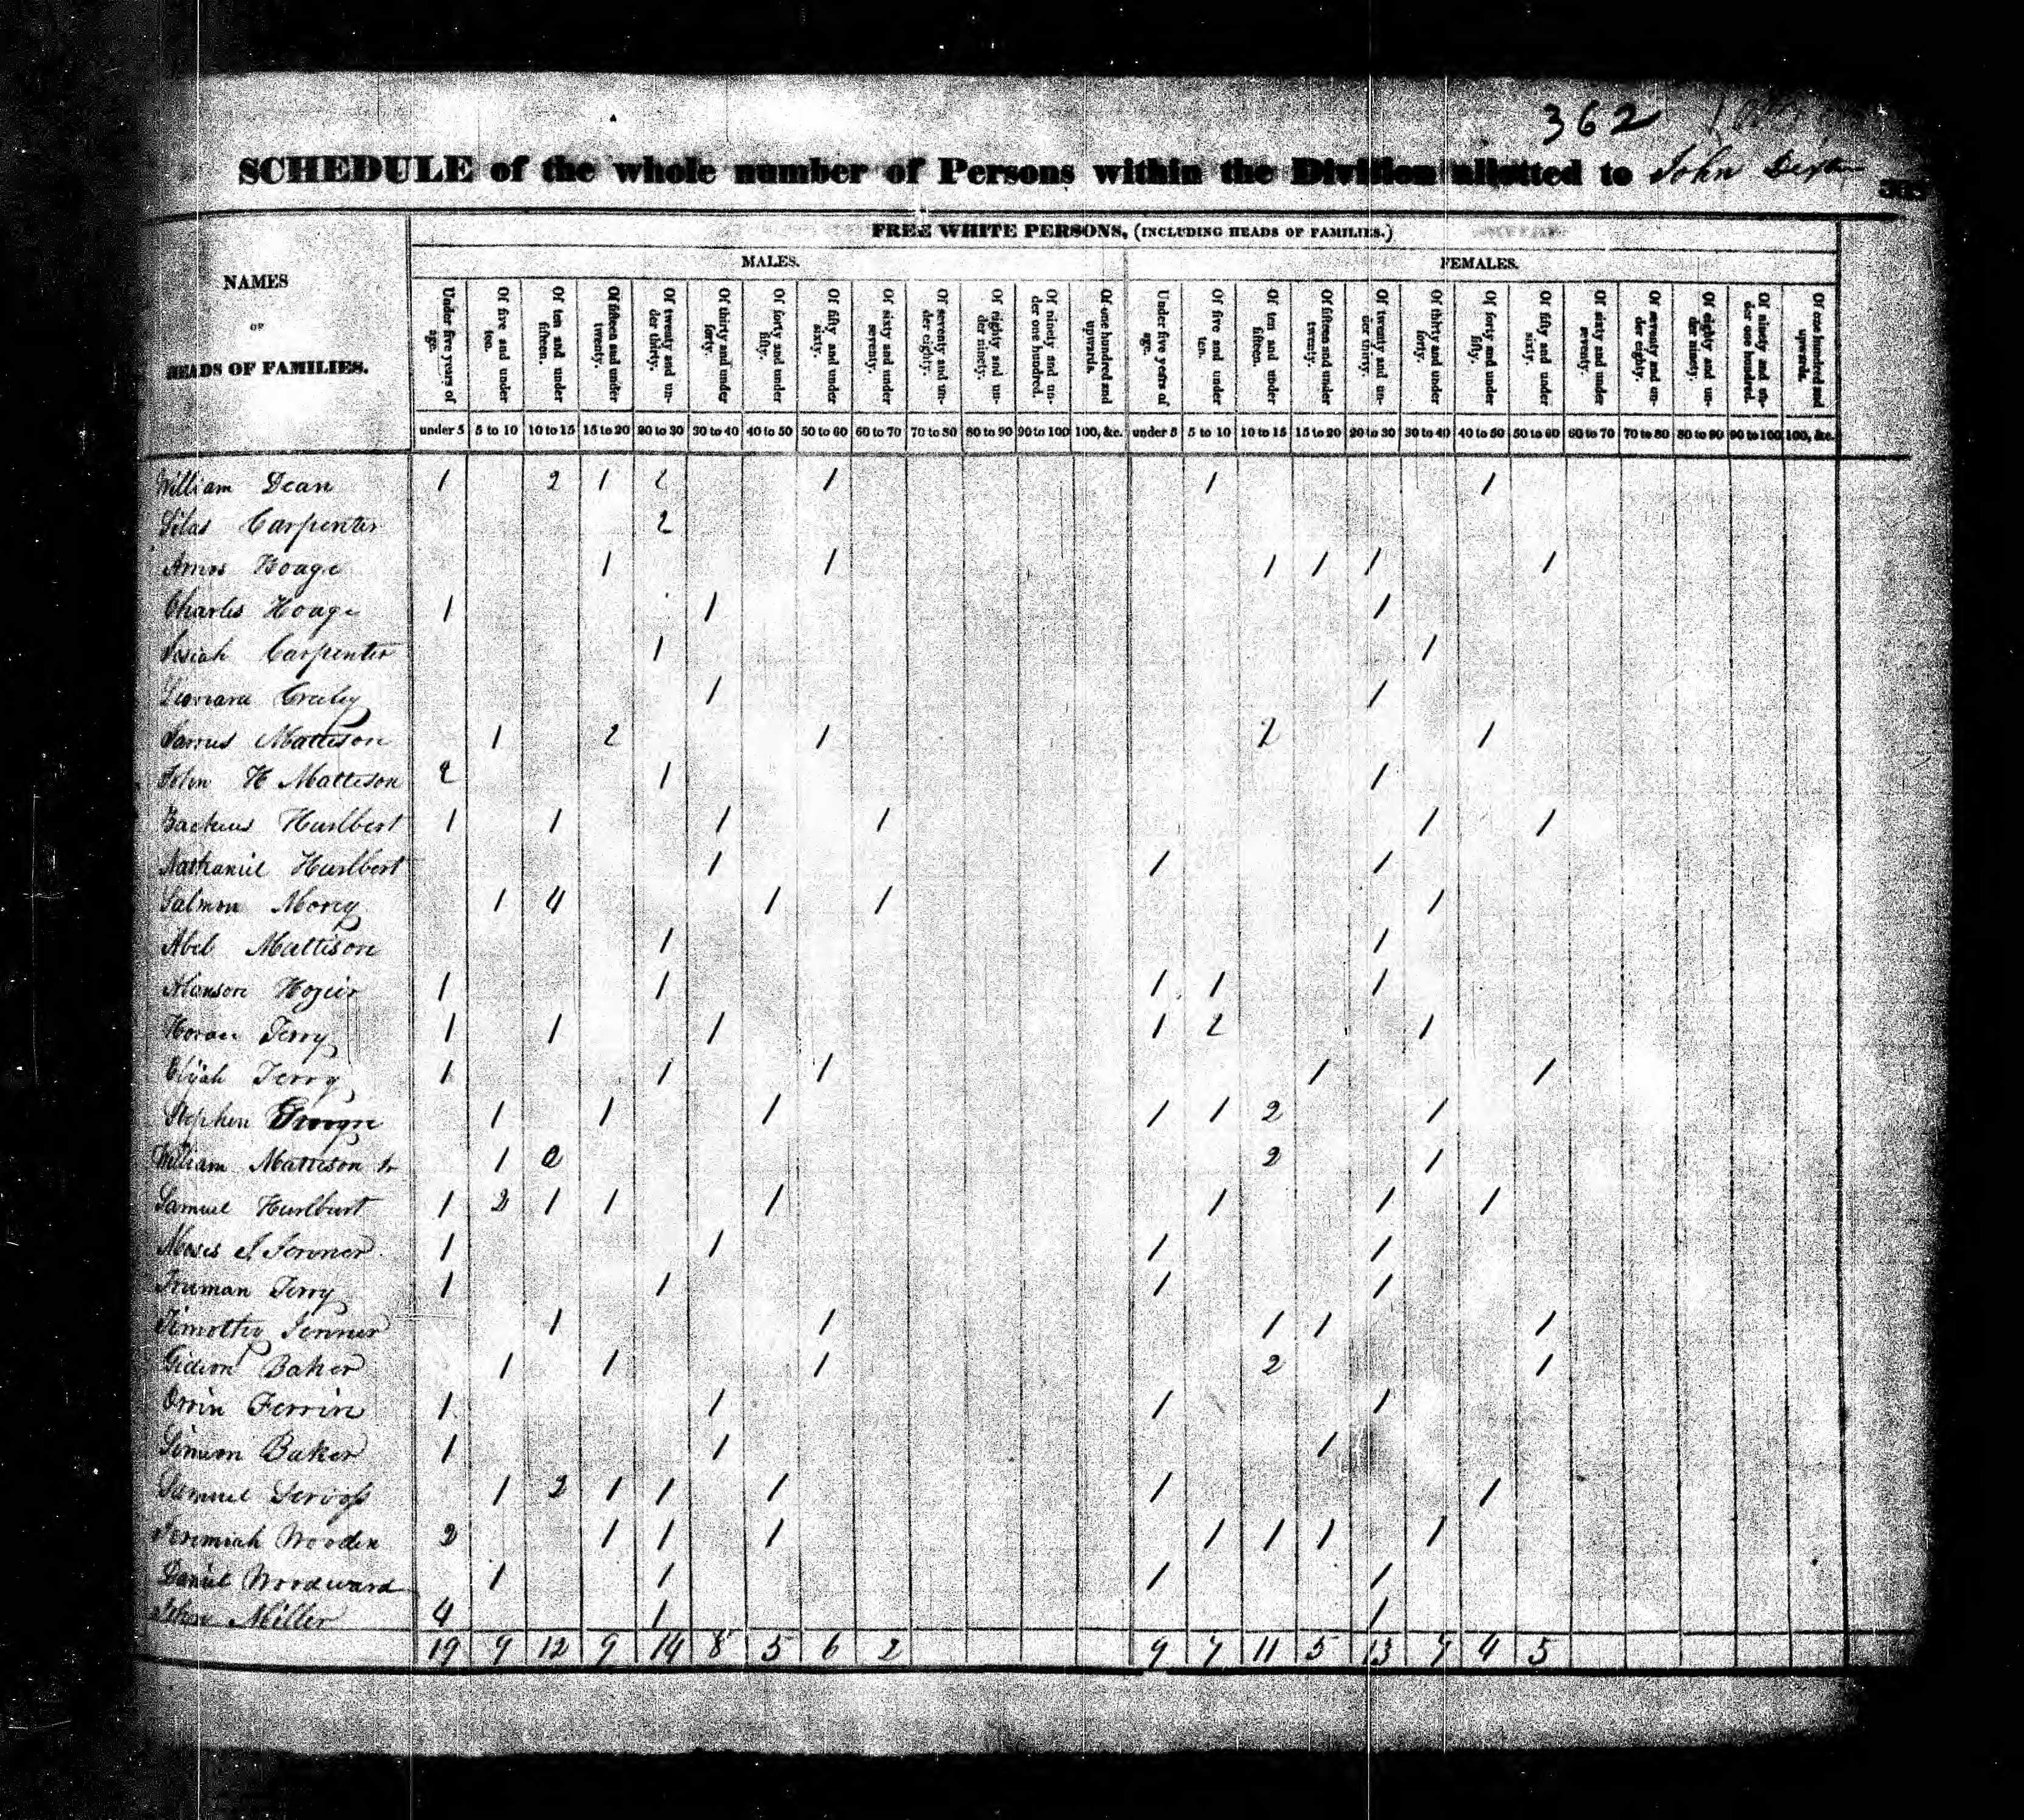 362
SCHEDULE of the whole number of Persons within the Division allotted to John
FREE WHITE PERSONS, (INCLUDING HEADS OF FAMILIES.)
MALES. FEMALES.
NAMES
OF
HEADS OF FAMILIES.
Under five years of age. Of five and under ten. Of ten and under fifteen. Of fifteen and under twenty. Of twenty and under thirty. Of thirty and under forty. Of forty and under fifty. Of fifty and under sixty. Of sixty and under seventy. Of seventy and under eighty. Of eighty and under ninety. Of ninety and under one hundred. Of one hundred and upwards. Under five years of age. Of five and under ten. Of ten and under fifteen. Of fifteen and under twenty. Of twenty and under thirty. Of thirty and under forty. Of forty and under fifty. Of fifty and under sixty. Of sixty and under seventy. Of seventy and under eighty. Of eighty and under ninety. Of ninety and under one hundred. Of one hundred and upwards.
under 5 5 to 10 10 to 15 15 to 20 20 to 30 30 to 40 40 to 50 50 to 60 60 to 70 70 to 80 80 to 90 90 to 100 100, &c. under 5 5 to 10 10 to 15 15 to 20 20 to 30 30 to 40 40 to 50 50 to 60 60 to 70 70 to 80 80 to 90 90 to 100 100, &c.
William Dean 1 2 1 2 1 1 1
Silas Carpenter 2
Amos Hoage 1 1 1 1 1 1
Charles Hoage 1 1 1
Josiah Carpenter 1 1
1 1
Mattison 1 2 1 2 1
John H Mattison 2 1 1
Backus Hurlbert 1 1 1 1 1 1
Nathaniel Hurlbert 1 1 1
Salmon Morey 1 4 1 1 1
Abel Mattison 1 1
1 1 1 1 1
Terry 1 1 1 1 2 1
Elijah Terry 1 1 1 1 1
Stephen 1 1 1 1 1 2 1
William Mattison 1 2 2 1
Samuel Hurlburt 1 2 1 1 1 1 1 1
Moses J Jenner 1 1 1 1
Truman Terry 1 1 1 1
Timothy Jenner 1 1 1 1 1
Gideon Baker 1 1 1 2 1
Orrin Ferrin 1 1 1 1
Simeon Baker 1 1 1
Samuel 1 2 1 1 1 1 1
Jeremiah Wooden 2 1 1 1 1 1 1 1
Daniel Woodward 1 1 1 1
Miller 4 1 1
19 9 12 9 14 8 5 6 2 9 7 11 5 13 7 4 5